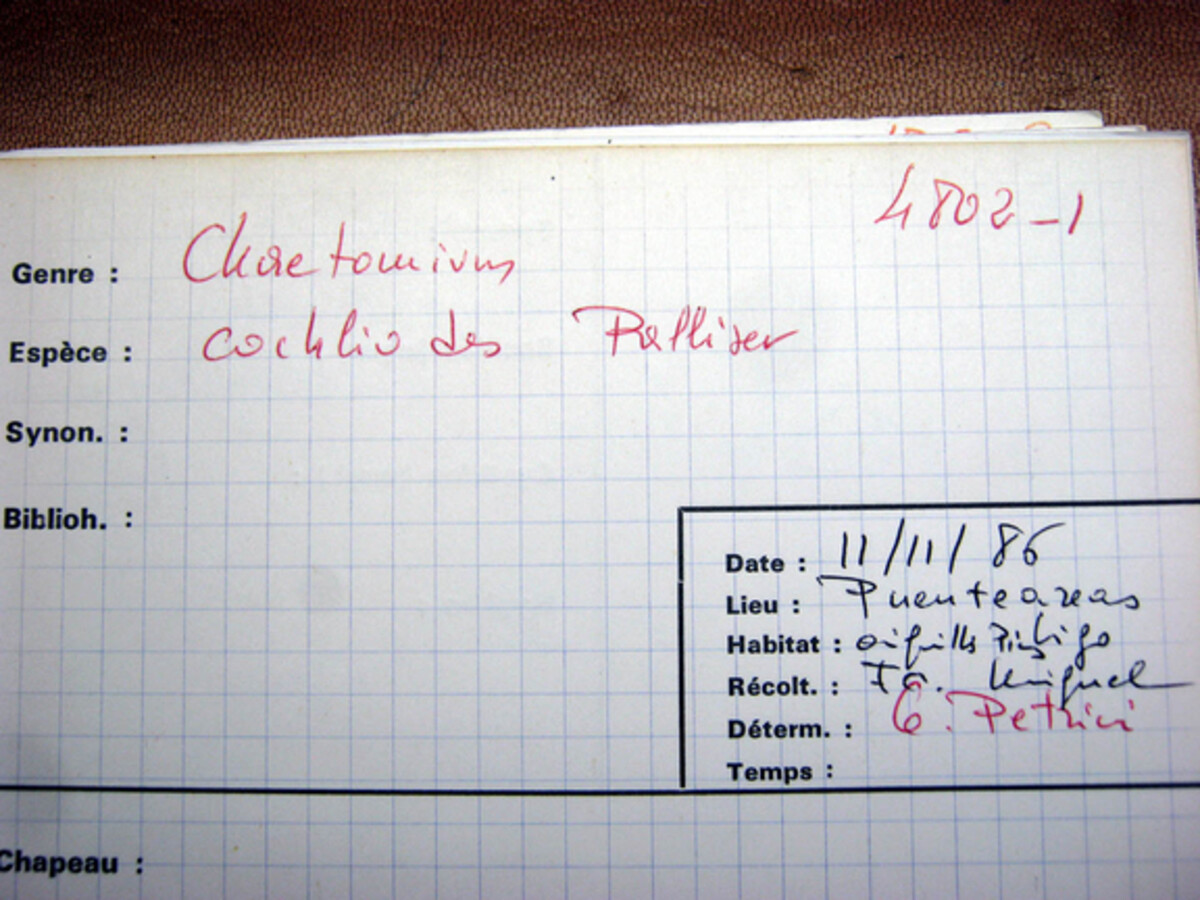 4802-1
Genre : Chaetomium
Espèce : cochliodes Palliser
Synon. :
Biblioh. :
Date : 11/11/86
Lieu : Puenteareas
Habitat :
Récolt. : Miguel
Déterm. : G. Petrini
Temps :
Chapeau :